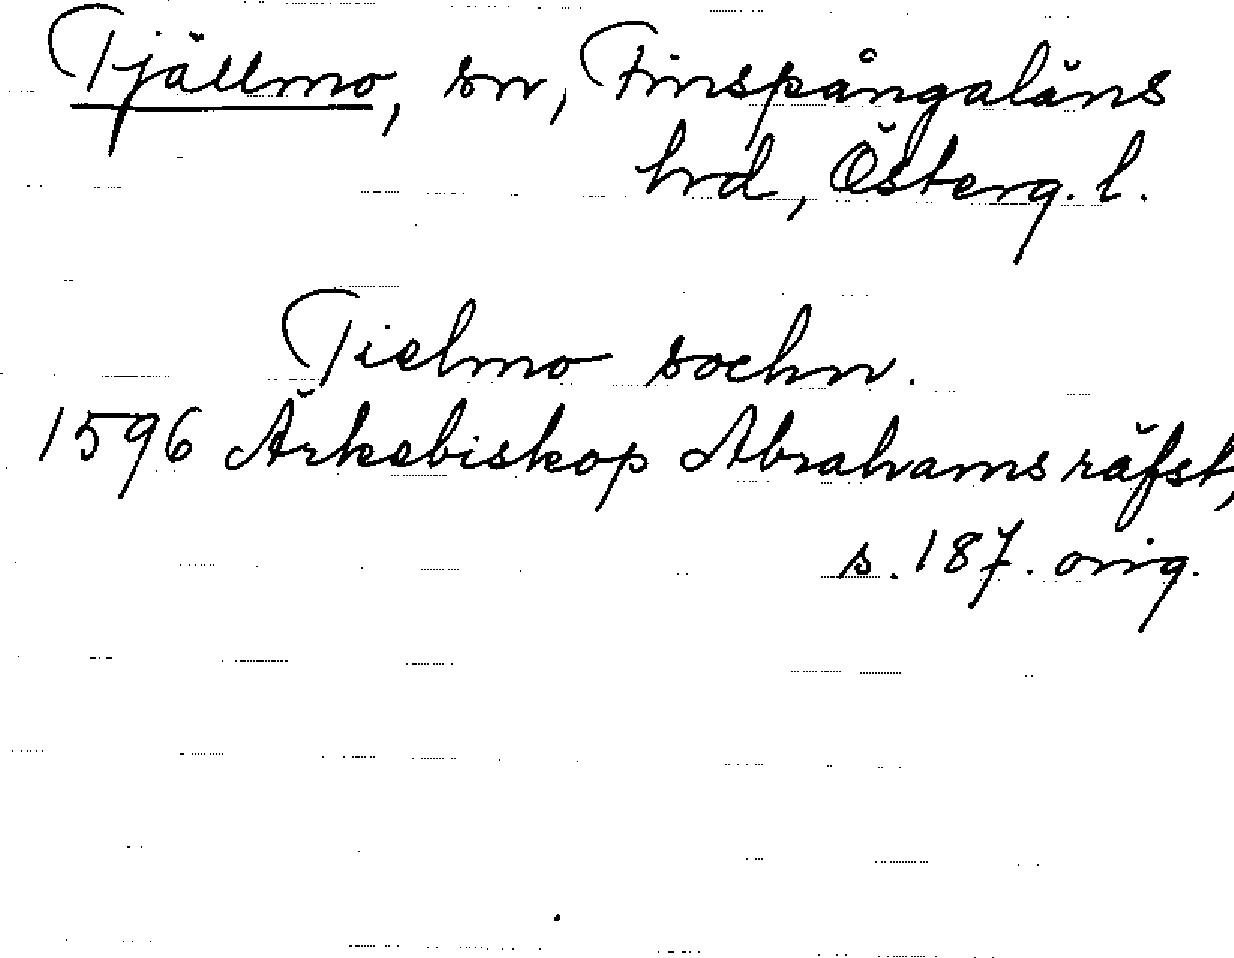 Tjällmo, sn, Finspångaläns
hrd, Österg. l.
Tielmo sochn.
1596 Ärkebiskop Abrahams räfst,
s. 187. orig.